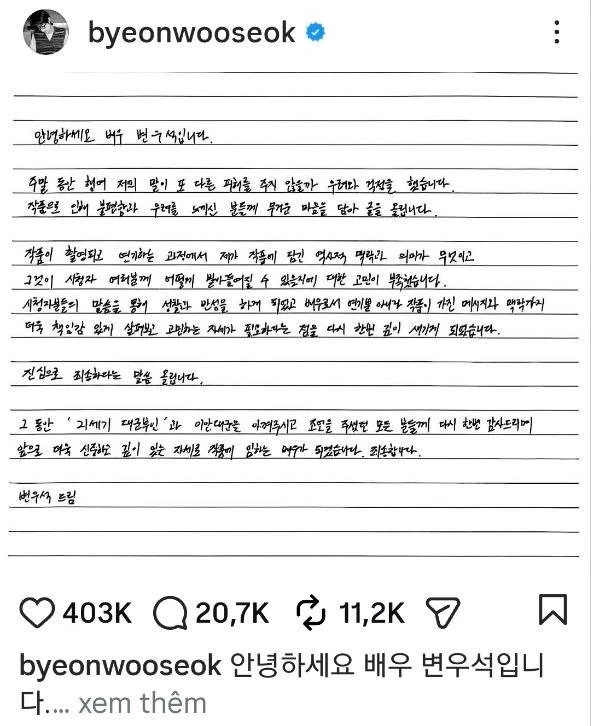 byeonwooseok
안녕하세요 배우 변우석입니다.
주말 동안 혹여 저의 말이 또 다른 피해를 주지 않을까 우려와 걱정을 했습니다.
작품으로 인해 불편함과 우려를 느끼신 분들께 무거운 마음을 담아 글을 올립니다.
작품이 촬영되고 연기하는 과정에서 제가 작품에 담긴 역사적 맥락과 의미가 무엇이고
그것이 시청자 여러분께 어떻게 받아들여질 수 있을지에 대한 고민이 부족했습니다.
시청자분들의 말씀을 통해 성찰과 반성을 하게 되었고 배우로서 연기뿐 아니라 작품이 가진 메시지와 맥락까지
더욱 책임감 있게 살펴보고 고민하는 자세가 필요하다는 점을 다시 한번 깊이 새기게 되었습니다.
진심으로 죄송하다는 말씀 올립니다.
그 동안 '21세기 대군부인'과 이안대군을 아껴주시고 조언을 주셨던 모든 분들께 다시 한번 감사드리며
앞으로 더욱 신중하고 깊이 있는 자세로 작품에 임하는 배우가 되겠습니다. 죄송합니다.
변우석 드림
403K 20,7K 11,2K
byeonwooseok 안녕하세요 배우 변우석입니
다.... xem thêm